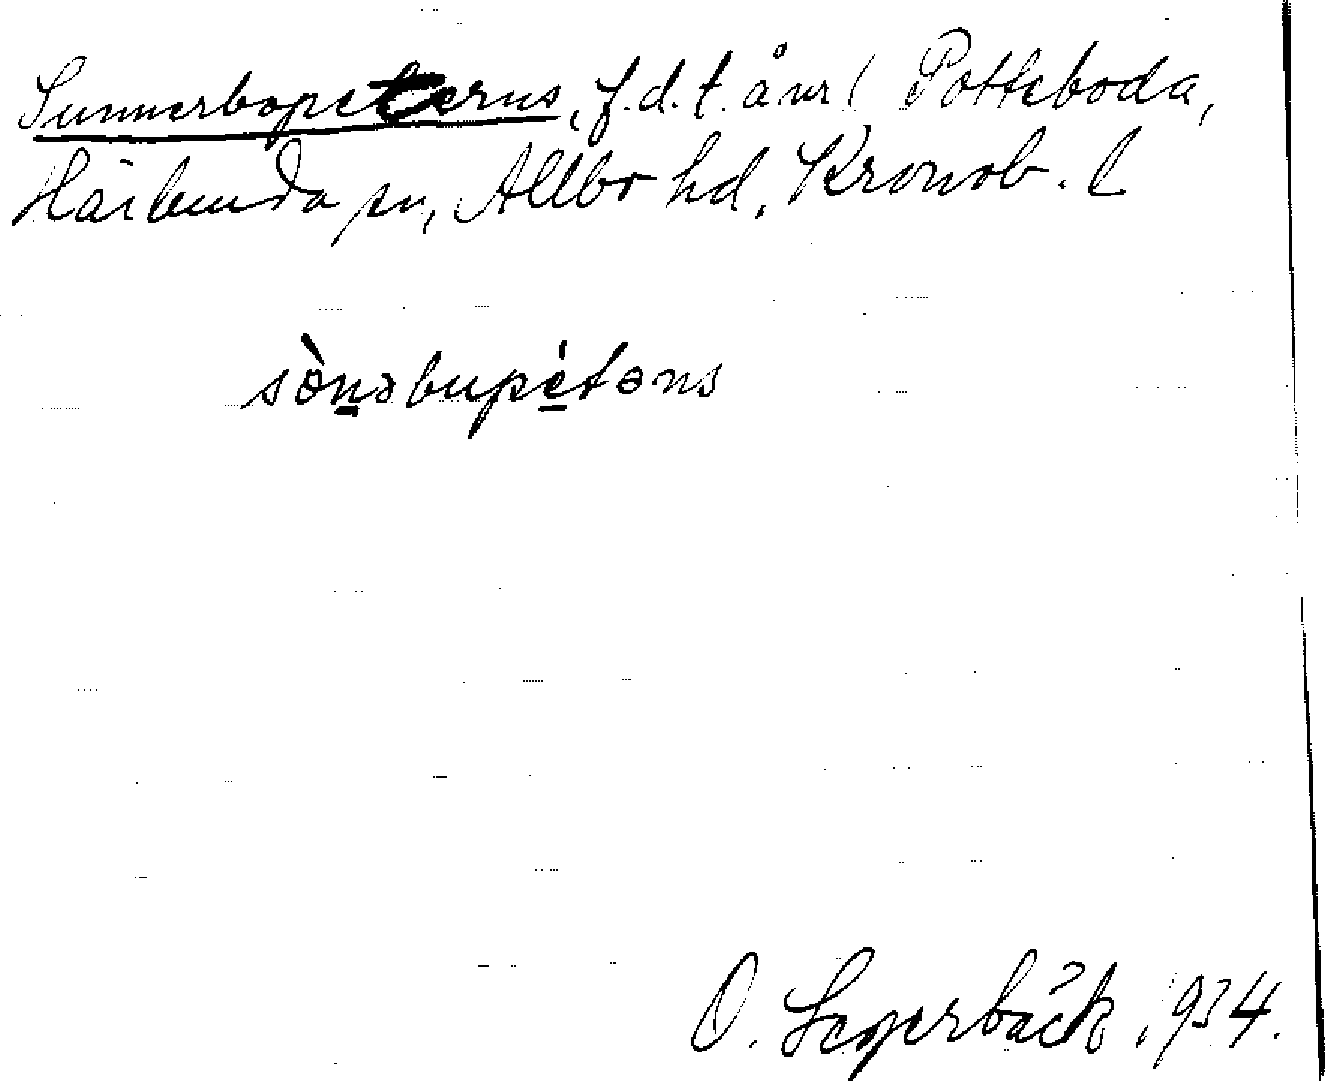 Sunnerbopeterns, f.d. t. å ur l Potteboda,
Härlunda sn, Allbo hd, Kronob. l
sònəbupétəns
O. Segerbäck, 1934.